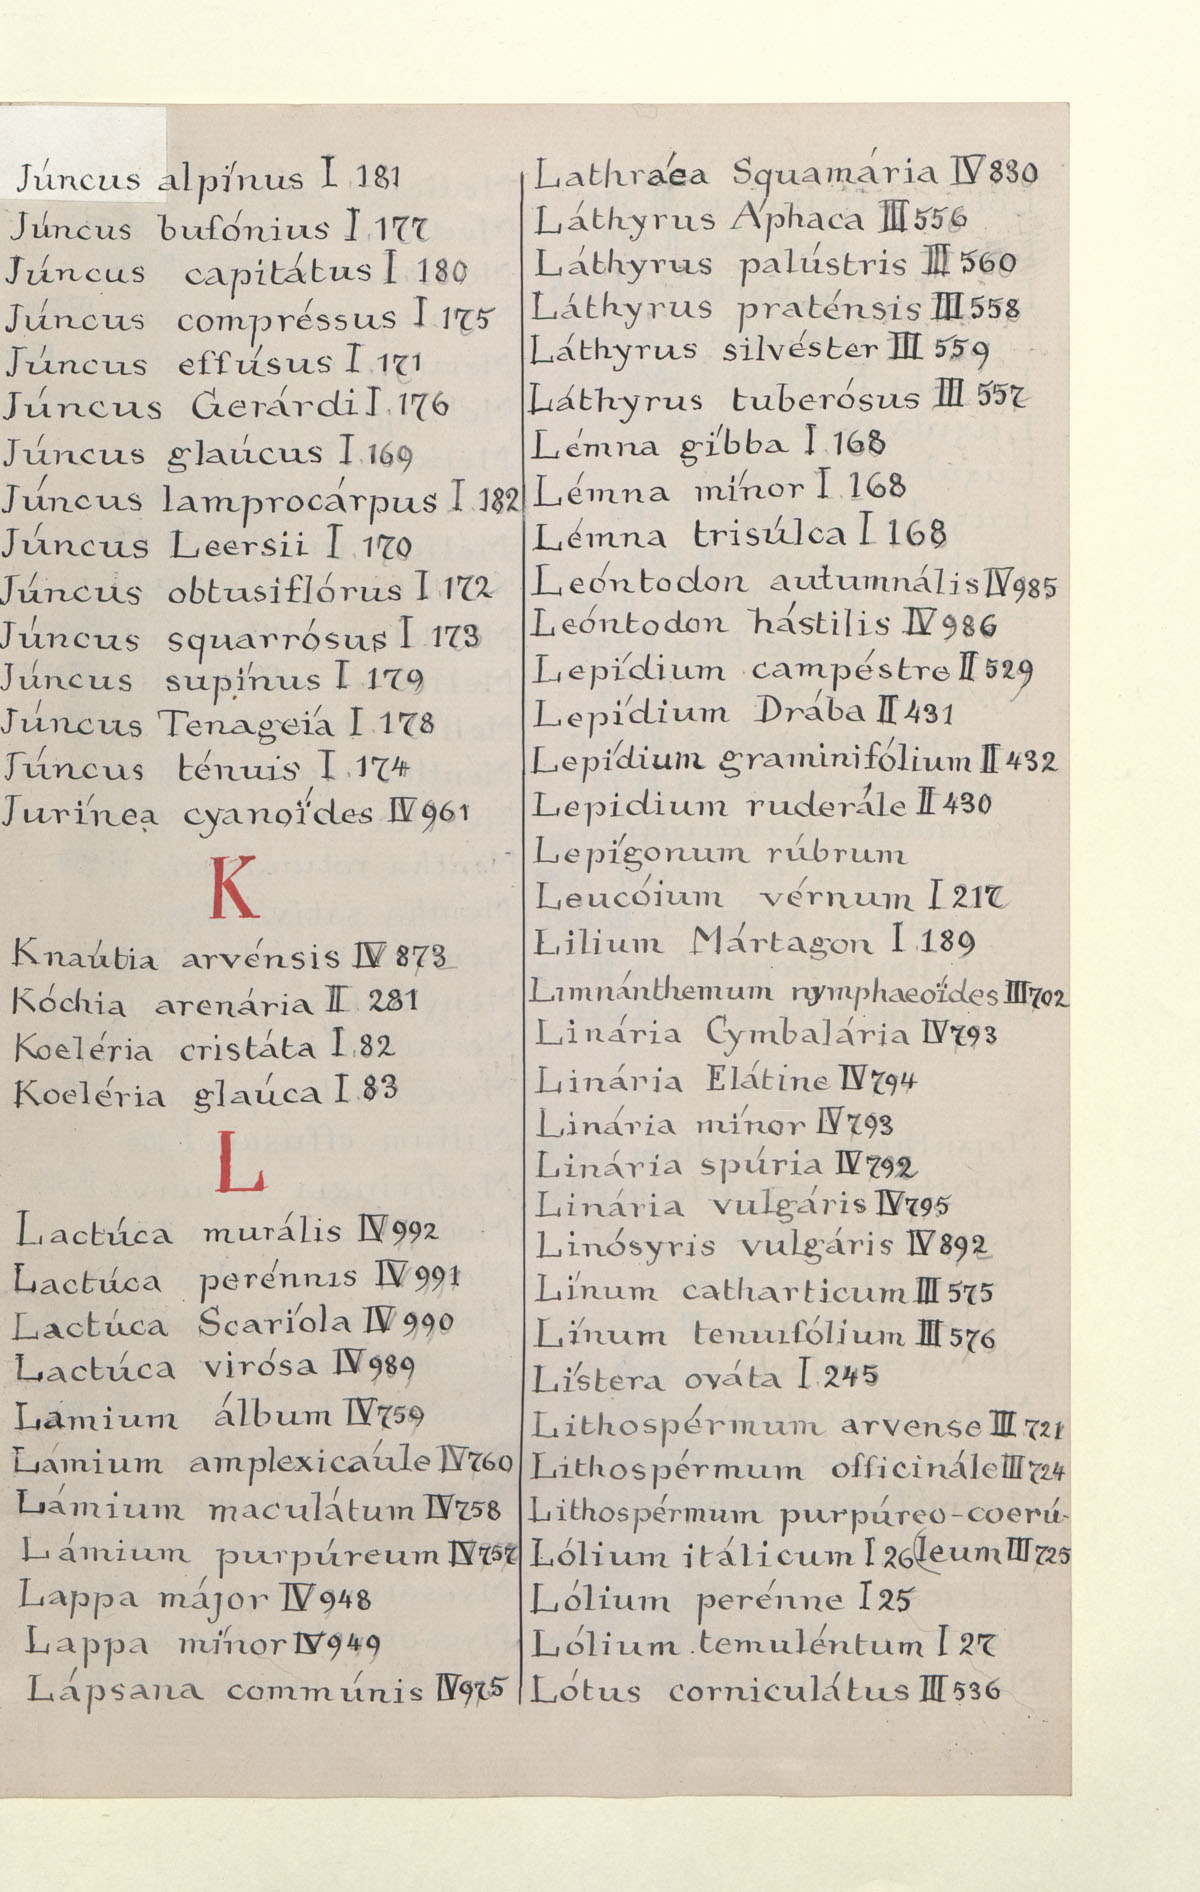 Júncus alpínus I 181
Júncus bufónius I 177
Júncus capitátus I 180
Júncus compréssus I 175
Júncus effúsus I 171
Júncus Gerárdi I 176
Júncus glaúcus I 169
Júncus lamprocárpus I 182
Júncus Leersii I 170
Júncus obtusiflórus I 172
Júncus squarrósus I 173
Júncus supínus I 179
Júncus Tenageiá I 178
Júncus ténuis I 174
Jurínea cyanoídes IV 961
K
Knaútia arvénsis IV 873
Kóchia arenária II 281
Koeléria cristáta I 82
Koeléria glaúca I 83
L
Lactúca murális IV 992
Lactúca perénnis IV 991
Lactúca Scaríola IV 990
Lactúca virósa IV 989
Lamium álbum IV 759
Lámium amplexicaúle IV 760
Lámium maculátum IV 758
Lámium purpúreum IV 757
Lappa májor IV 948
Lappa mínor IV 949
Lápsana commúnis IV 975
Lathraéa Squamária IV 830
Láthyrus Áphaca III 556
Láthyrus palústris III 560
Láthyrus praténsis III 558
Láthyrus silvéster III 559
Láthyrus tuberósus III 557
Lémna gíbba I 168
Lémna mínor I 168
Lémna trisúlca I 168
Leóntodon autumnális IV 985
Leóntodon hástilis IV 986
Lepídium campéstre II 529
Lepídium Drába II 431
Lepídium graminifólium II 432
Lepidium ruderále II 430
Lepígonum rúbrum
Leucóium vérnum I 217
Lilium Mártagon I 189
Limnánthemum nymphaeoídes III 702
Linária Cymbalária IV 793
Linária Elátine IV 794
Linária mínor IV 793
Linária spúria IV 792
Linária vulgáris IV 795
Linósyris vulgáris IV 892
Línum catharticum III 575
Línum tenuifólium III 576
Lístera ováta I 245
Lithospérmum arvense III 721
Lithospérmum officinále III 724
Lithospérmum purpúreo-coerú-
Lólium itálicum I 26 (leum III 725
Lólium perénne I 25
Lólium temuléntum I 27
Lótus corniculátus III 536